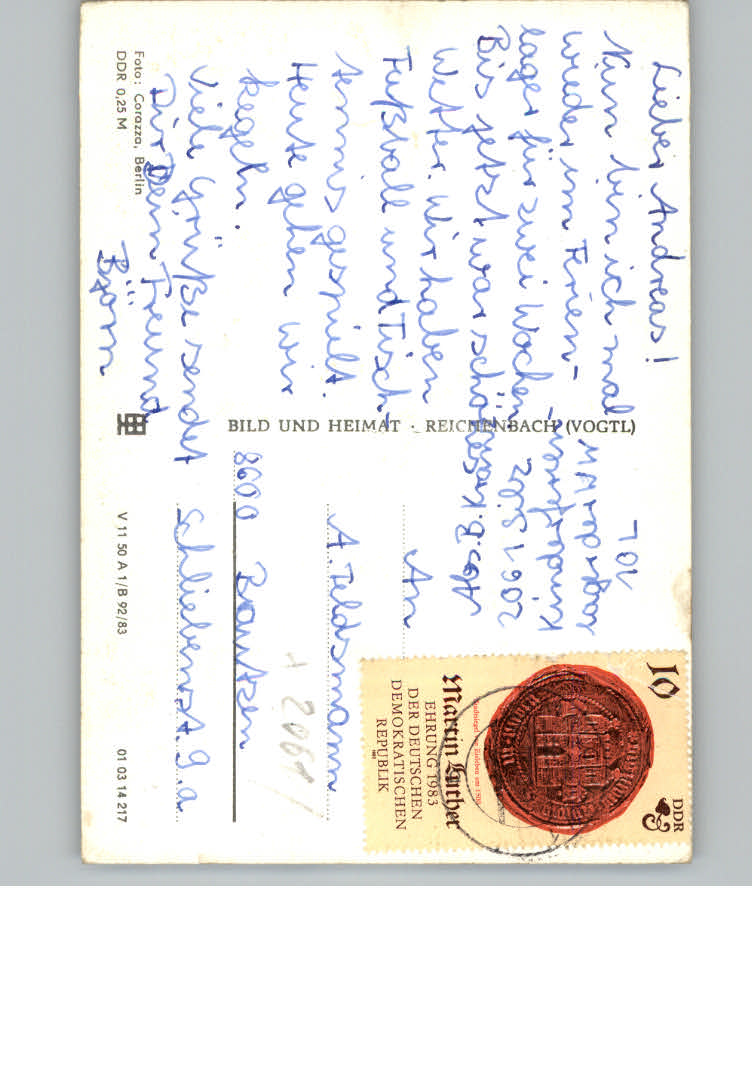 Lieber Andreas!
Nun bin ich mal
wieder im Ferien-
lager für zwei Wochen.
Bis jetzt war schönes
Wetter. Wir haben
Fußball und Tisch-
tennis gespielt.
Heute gehen wir
kegeln.
Viele Grüße sendet
Dir Dein Freund
Björn
Foto: Corazza, Berlin
DDR 0,25 M
BILD UND HEIMAT · REICHENBACH (VOGTL)
V 11 50 A 1/B 92/83
01 03 14 217
701
2061
An
A. Feldmann
8600 Bautzen
Schliebenst. 9.a
10
DDR
Martin Luther
EHRUNG 1983
DER DEUTSCHEN
DEMOKRATISCHEN
REPUBLIK
1983